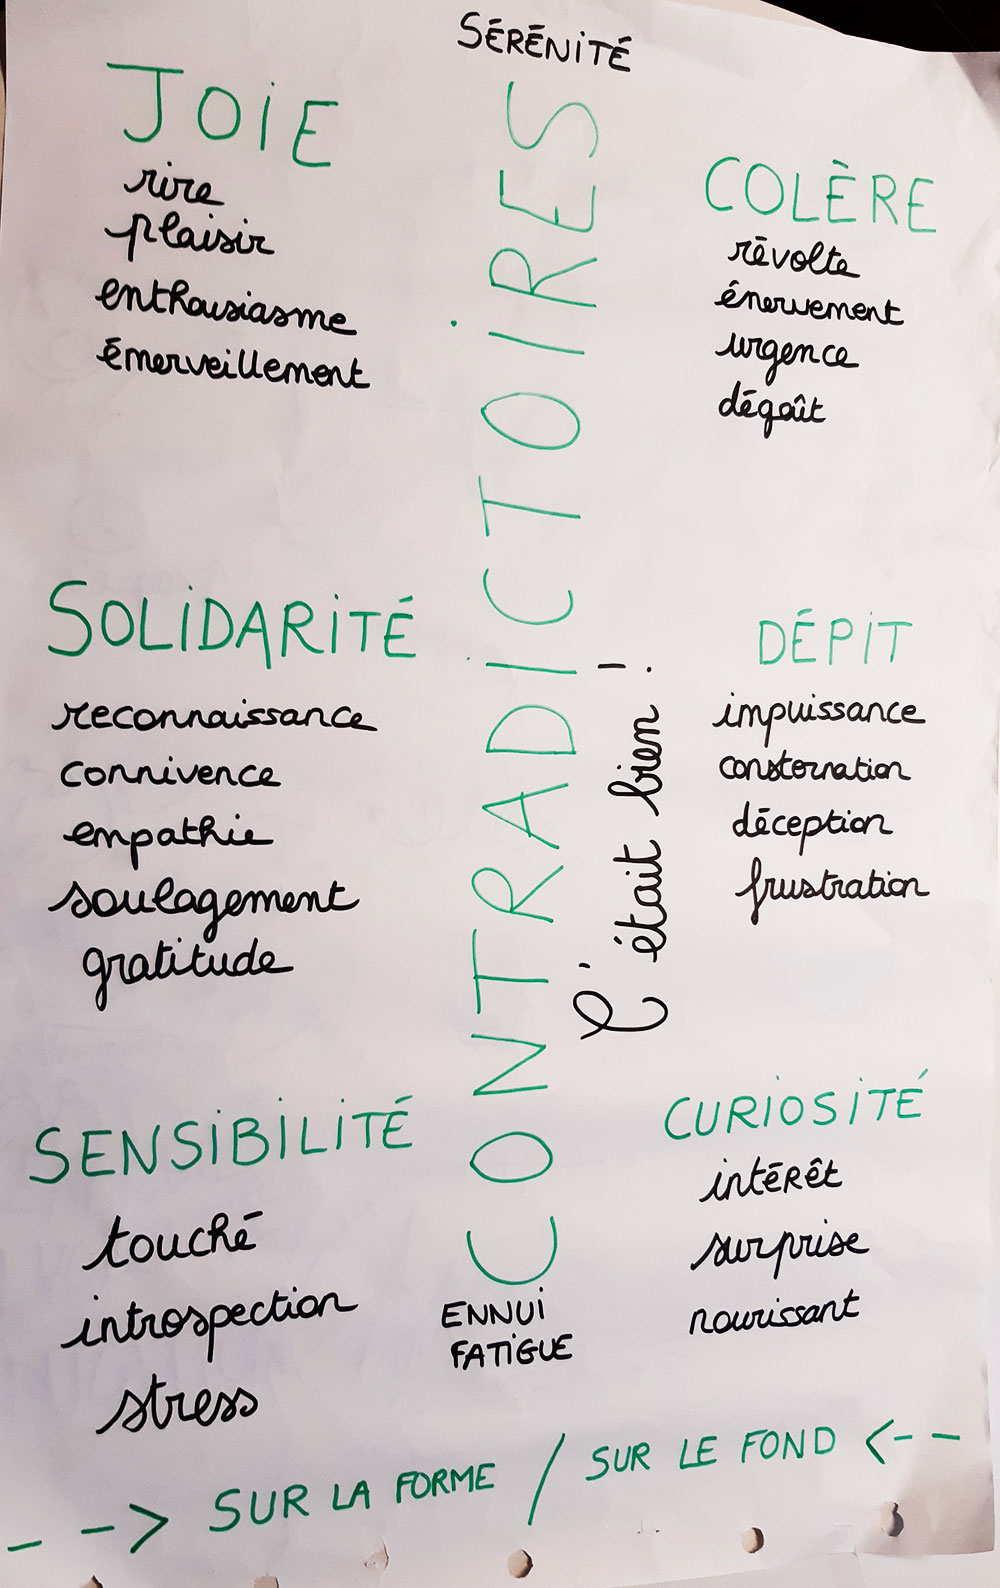 SÉRÉNITÉ
JOIE
rire
plaisir
enthousiasme
émerveillement
COLÈRE
révolte
énervement
urgence
dégoût
CONTRADICTOIRES
c'était bien !
SOLIDARITÉ
reconnaissance
connivence
empathie
soulagement
gratitude
DÉPIT
impuissance
consternation
déception
frustration
SENSIBILITÉ
touché
introspection
stress
CURIOSITÉ
intérêt
surprise
nourissant
ENNUI
FATIGUE
--> SUR LA FORME / SUR LE FOND <--